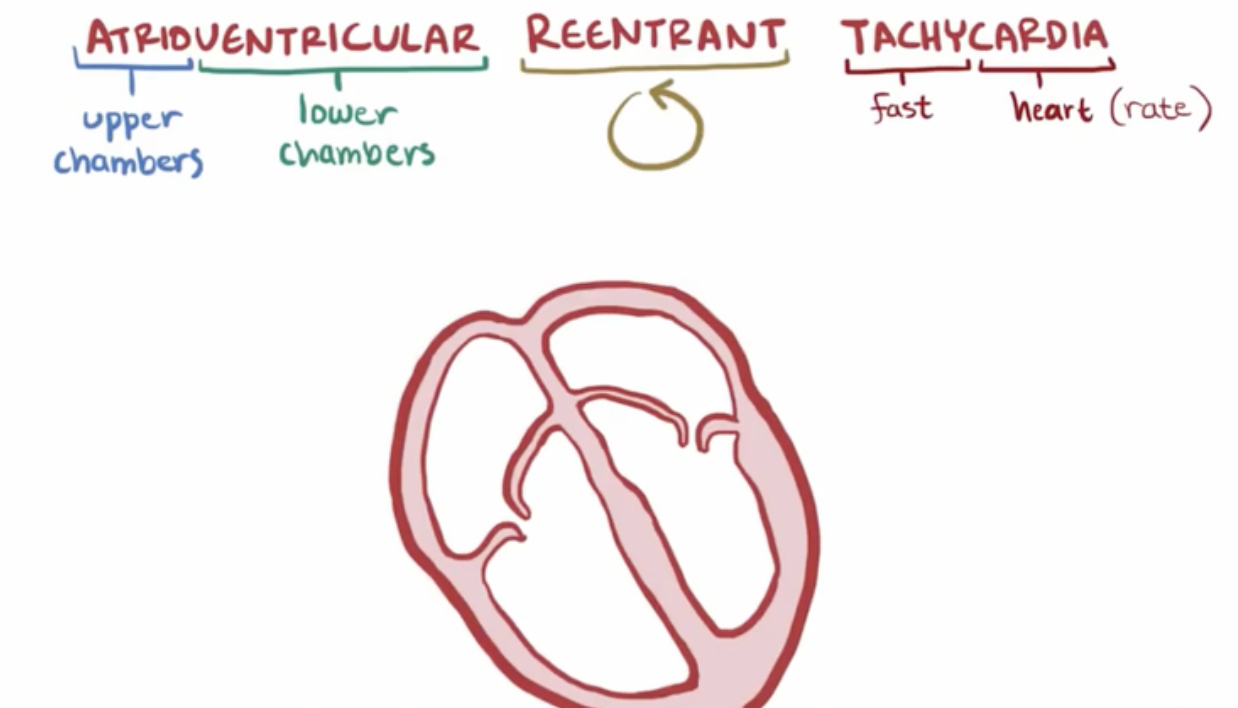 ATRIOVENTRICULAR REENTRANT TACHYCARDIA
upper chambers
lower chambers
fast
heart (rate)